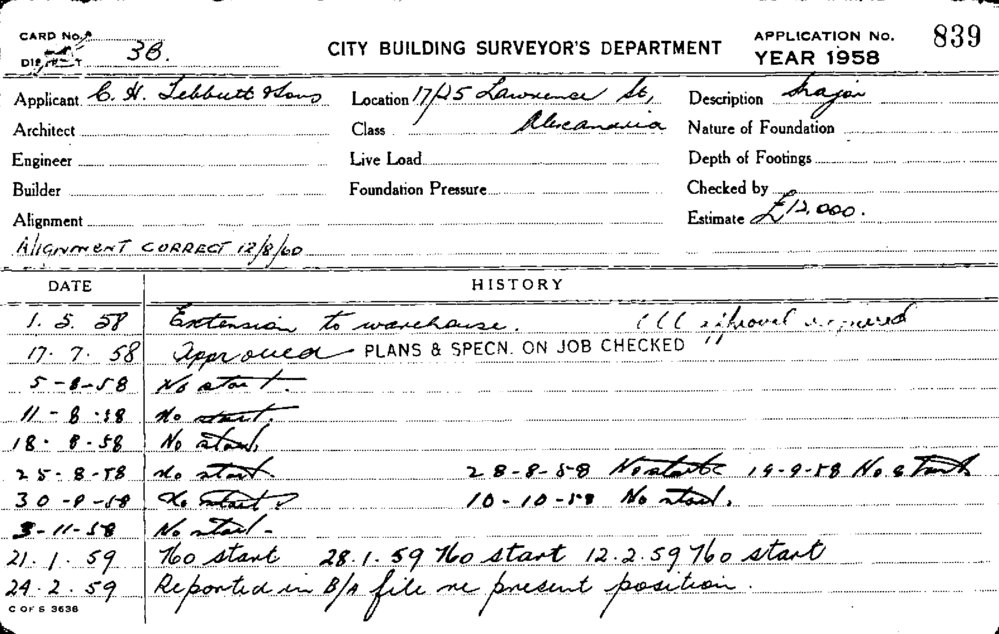 CARD No.
DISTRICT 3B.
CITY BUILDING SURVEYOR'S DEPARTMENT
APPLICATION No. 839
YEAR 1958
Applicant C. H. Tebbutt & Sons Location 17/25 Lawrence St, Description Major
Architect Class Alexandria Nature of Foundation
Engineer Live Load Depth of Footings
Builder Foundation Pressure Checked by
Alignment Estimate £12,000.
ALIGNMENT CORRECT 12/8/60
DATE HISTORY
1. 5. 58 Extension to warehouse. approval required
17. 7. 58 Approved PLANS & SPECN. ON JOB CHECKED "
5-8-58 No start.
11-8-58 No start.
18-8-58 No start.
25-8-58 No start. 28-8-58 No start 19-9-58 No start
30-9-58 No start 10-10-58 No start.
3-11-58 No start-
21. 1. 59 No start 28.1.59 No start 12.2.59 No start
24. 2. 59 Reported in B/A file re present position.
C OF S 3636